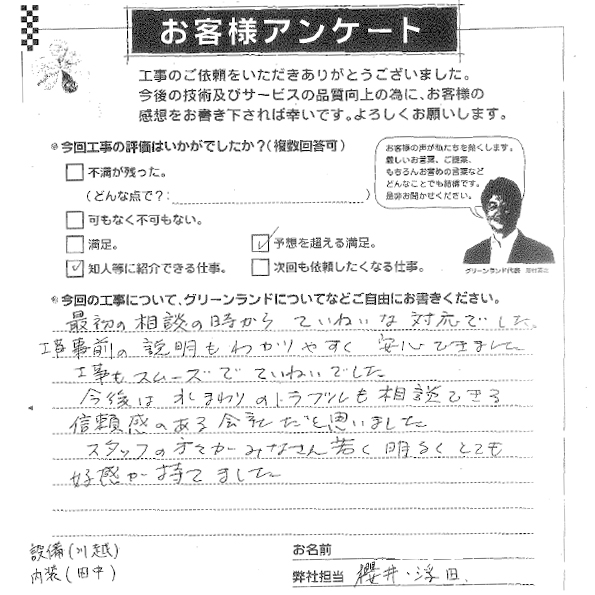 お客様アンケート
工事のご依頼をいただきありがとうございました。
今後の技術及びサービスの品質向上の為に、お客様の
感想をお書き下されば幸いです。よろしくお願いします。
今回工事の評価はいかがでしたか？(複数回答可)
不満が残った。
(どんな点で？: )
可もなく不可もない。
満足。
予想を超える満足。
知人等に紹介できる仕事。
次回も依頼したくなる仕事。
お客様の声が私たちを熱くします。
厳しいお言葉、ご提案、
もちろんお誉めの言葉など
どんなことでも結構です。
是非お聞かせください。
グリーンランド代表
今回の工事について、グリーンランドについてなどご自由にお書きください。
最初の相談の時から ていねいな対応でした。
工事前の説明もわかりやすく 安心できました
工事もスムーズで ていねいでした
今後は水まわりのトラブルも相談できる
信頼感のある会社だと思いました
スタッフの方々がみなさん若く明るくとても
好感が持てました
設備(川越)
内装(田中)
お名前
弊社担当 櫻井・浮田